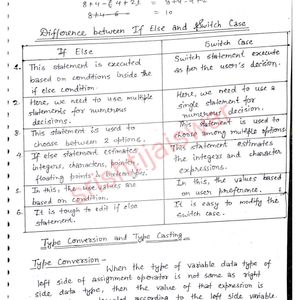 8+4-(4+2)
8+4-6 = 10
Difference between If Else and Switch Case
If Else
Switch Case
1. This statement is executed
based on conditions inside the
if else condition.
Switch statement execute
as per the user's decision.
2. Here, we need to use multiple
statements for numerous
decisions.
Here, we need to use a
single statement for
numerous decision.
3. This statement is used to
choose between 2 options.
This statement is used to
choose among multiple options
4. If else statement estimates
integers, characters, pointer,
floating points
This statement estimates
the integers and character
expressions.
5. In this, the values are
based on condition.
In this, the values based
on user preference.
6. It is tough to edit if else
statement.
It is easy to modify the
switch case.
Type Conversion and Type Casting
Type Conversion -
When the type of variable data type of
left side of assignment operator is not same as right
side data type, then the value of that expression is
according to the left side variable